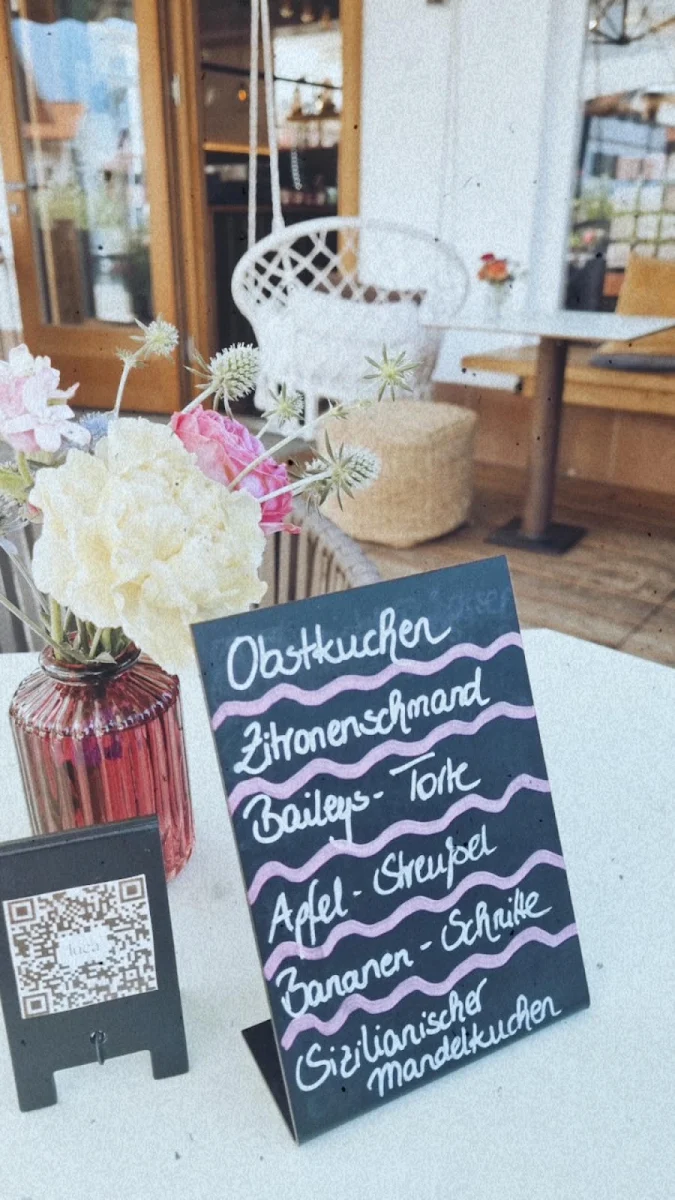 Obstkuchen
Zitronenschmand
Baileys - Torte
Apfel - Streußel
Bananen - Schnitte
Sizilianischer
Mandelkuchen